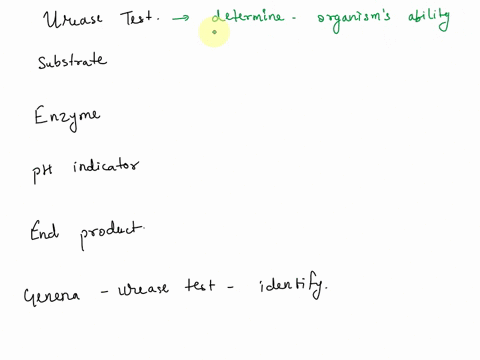 Urease Test. → determine - organism's ability
Substrate
Enzyme
pH indicator
End product.
Genera - urease test - identify.